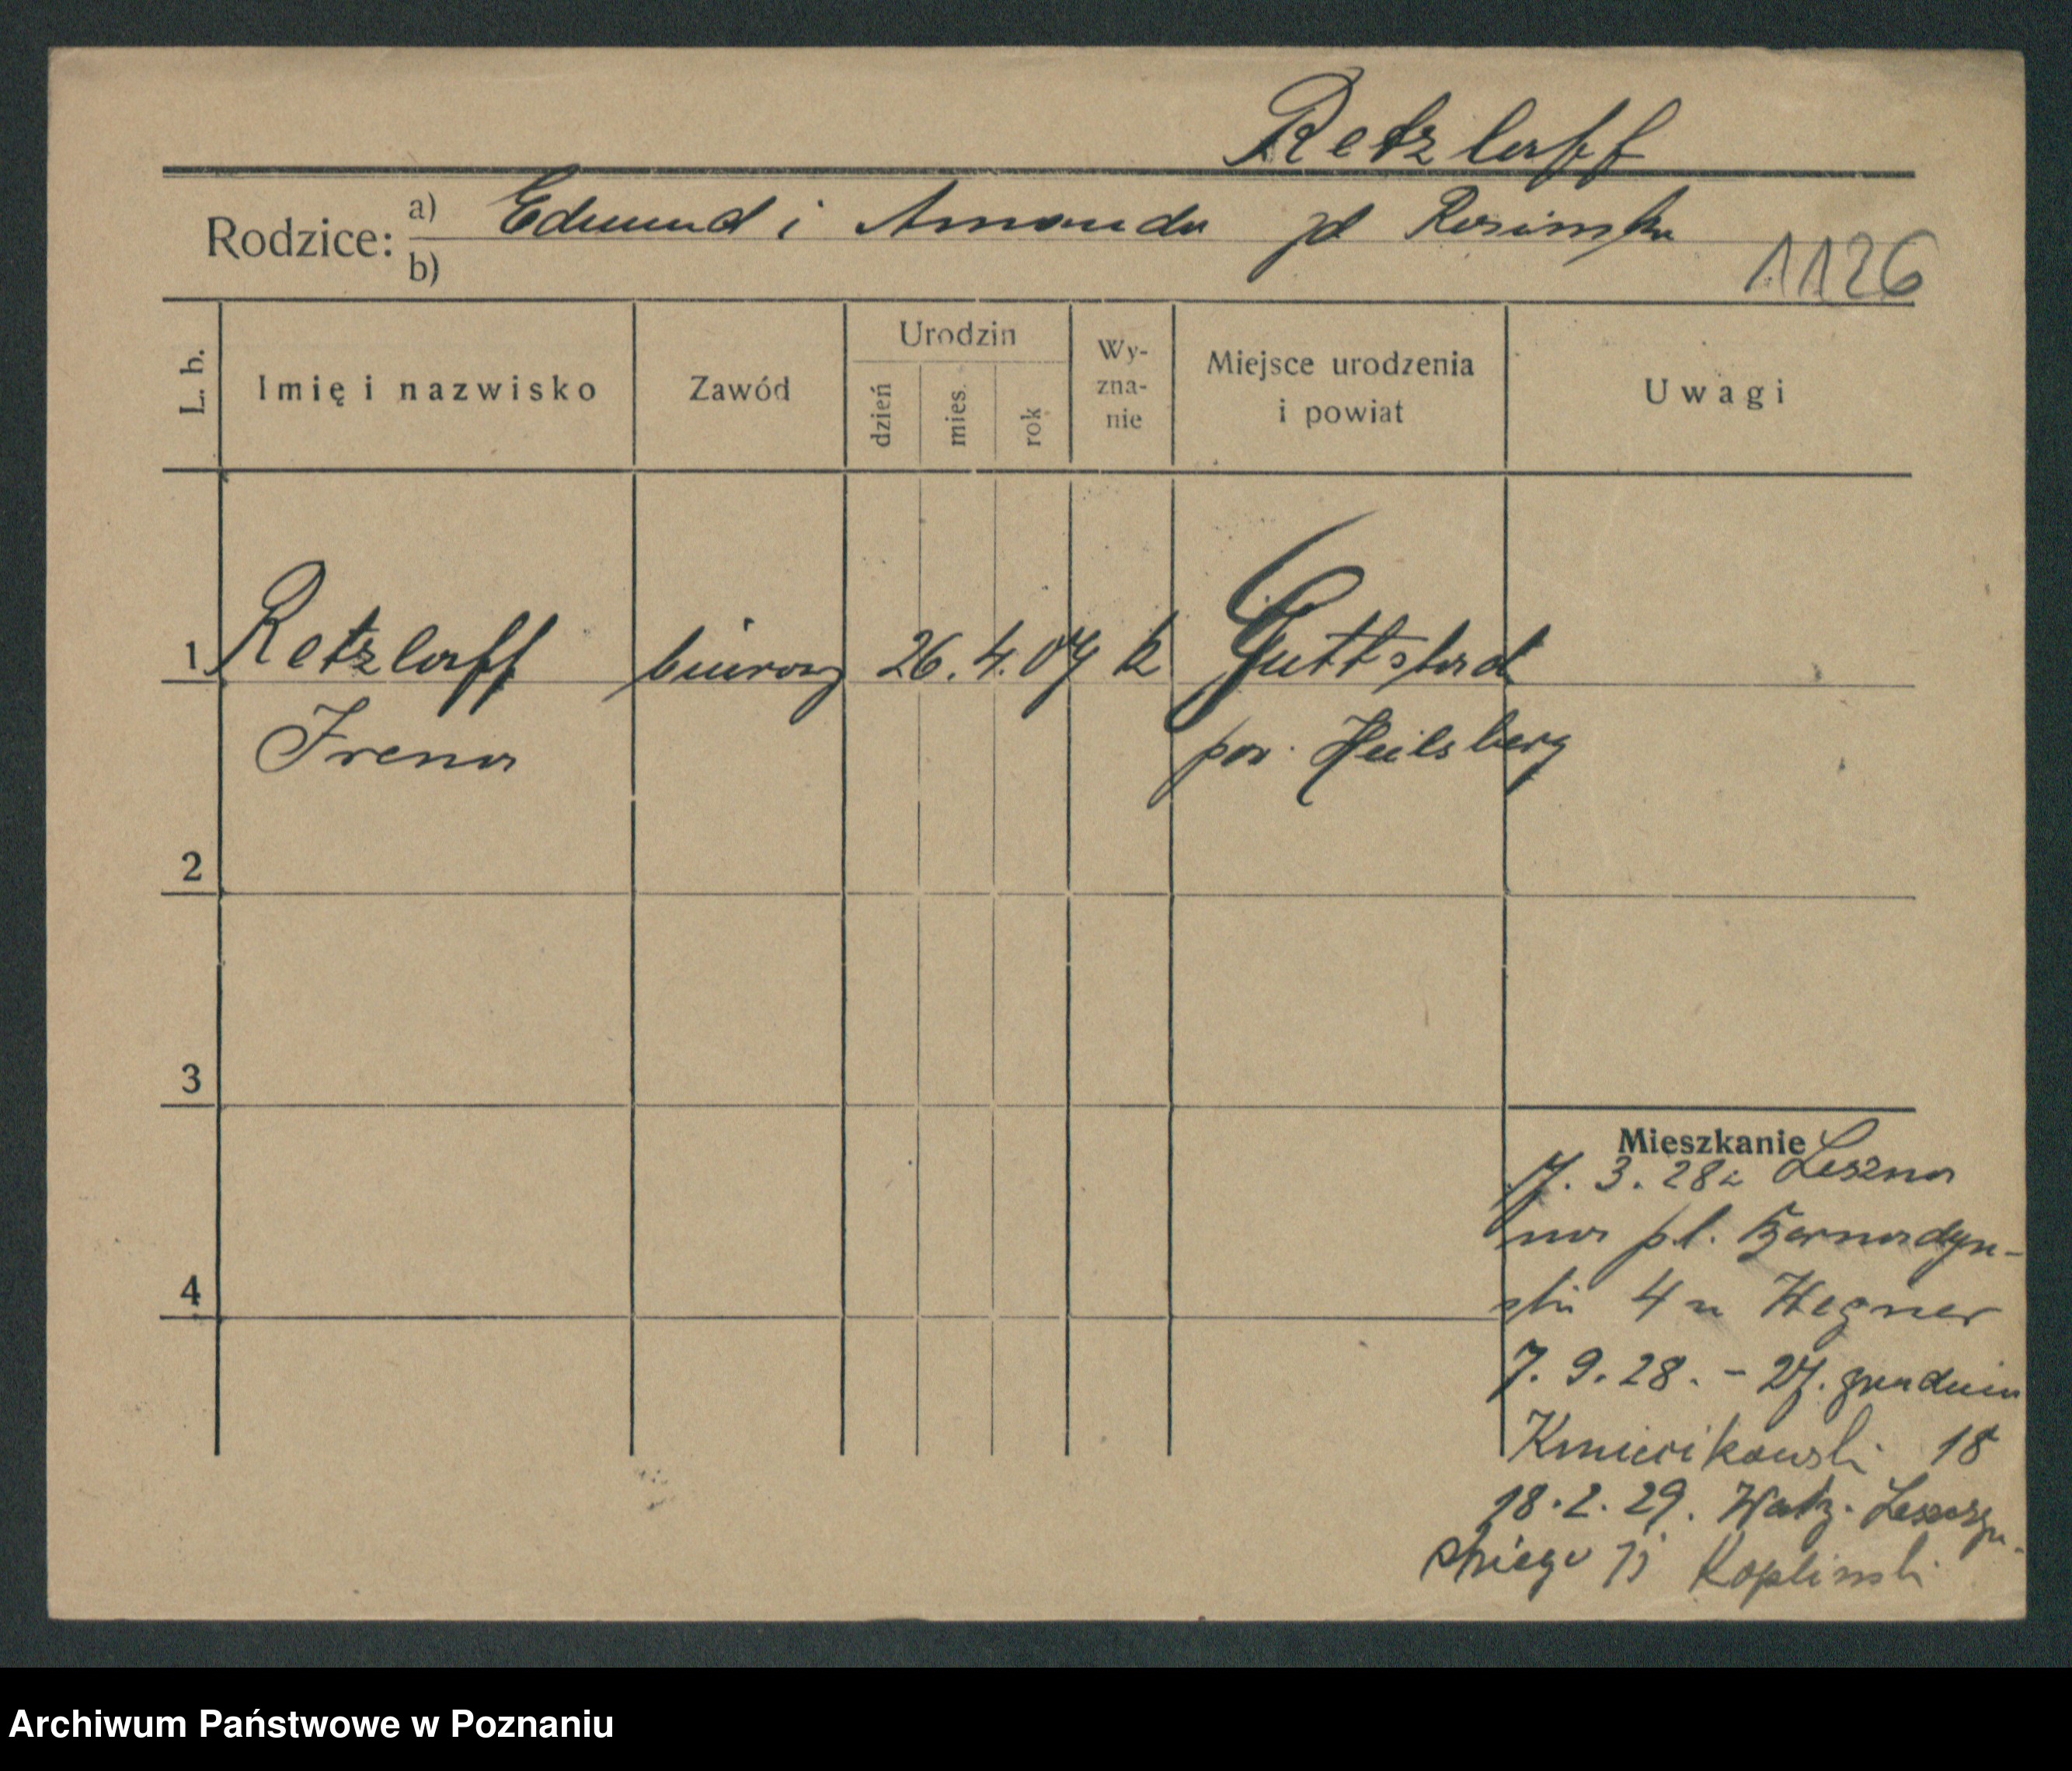 Retzlaff
Rodzice: a) Edmund i Amanda zd Rosinska
b)
1126
L. b.
Imię i nazwisko
Zawód
Urodzin
dzień
mies.
rok
Wy-
zna-
nie
Miejsce urodzenia
i powiat
Uwagi
1 Retzlaff biurowy 26. 4. 07 k Guttstadt
Irena pow. Heilsberg
2
3
4
Mieszkanie
17. 3. 28 z Leszna
na pl. Bernardyn-
ski 4 u Wegner
7. 9. 28. - 27. grudnia
18
18. 2. 29. Wacł. Leszczyń-
skiego Koplinski
Archiwum Państwowe w Poznaniu